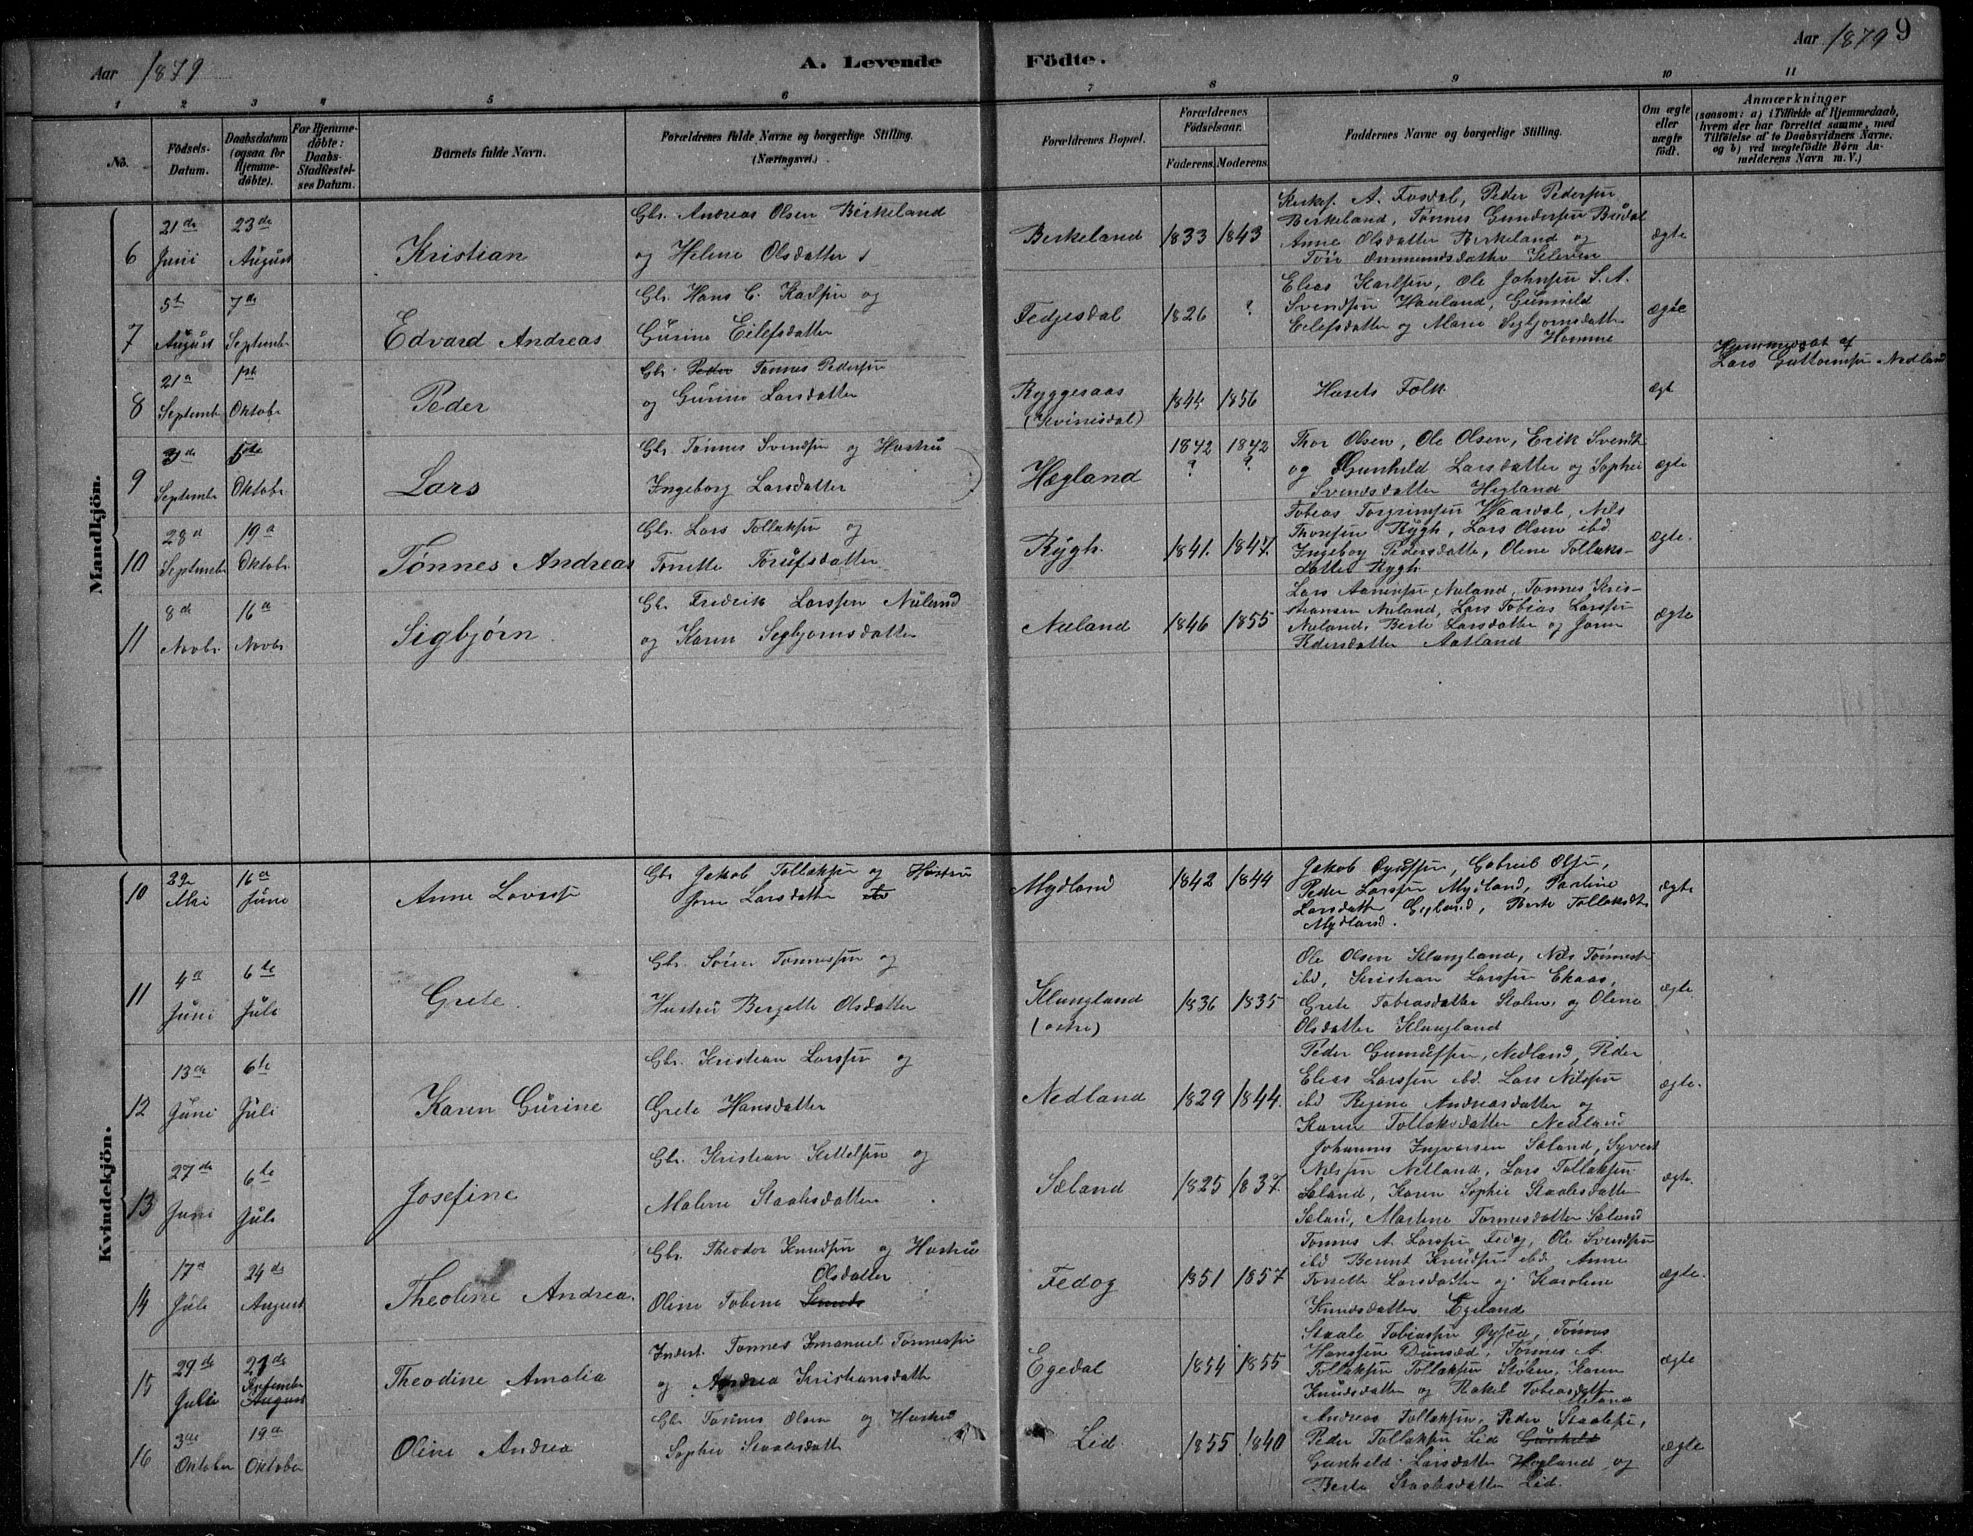 Aar 1879
A. Levende Födte.
Aar 1879 9
1 2 3 4 5 6 7 8 9 10 11
No.
Födsels-Datum.
Daabsdatum (ogsaa for Hjemme-döbte).
For Hjemme-döbte: Daabs-Stadfæstel-ses Datum.
Barnets fulde Navn.
Forældrenes fulde Navne og borgerlige Stilling. (Næringsvei.)
Forældrenes Bopæl.
Forældrenes Födselsaar.
Faderens. Moderens.
Faddernes Navne og borgerlige Stilling.
Om ægte eller uægte födt.
Anmærkninger
(saasom: a) i Tilfælde af Hjemmedaab, hvem der har forrettet samme, med Tilföielse af to Daabsvidners Navne. og b) ved uægtefödte Börn An-melderens Navn m. V.)
Mandkjön.
6
21de Juni
23de August
Kristian
Gbr. Andreas Olsen Birkeland
og Helene Olsdatter
Birkeland
1833 1843
A. Fosdal, Peder Pedersen
Birkeland, Tønnes Gundersen
Anne Olsdatter Birkeland og
ægte
7
5te August
7de Septembr
Edvard Andreas
Gbr. Hans C. Karlsen og
Gurine Eilefsdatter
Fedjesdal
1826 ?
Elias Karlsen, Ole Johnsen S. A.
Svendsen Hauland, Gunnild
Eilefsdatter og Marie Sigbjornsdatter
Homme
ægte
8
21a Septembr
1ste Oktobr
Peder
Gbr. Peder Tønnes Pedersen
og Gurine Larsdatter
Ryggesaas
(Kvinesdal)
1844 1856
Husets Folk
ægt
Hjemmedøbt af
Lars Guttormsen Nedland
9
3de Septembr
5te Oktobr
Lars
Gbr. Tønnes Svendsen og Hustru
Ingeborg Larsdatter
Hægland
1842 ? 1842 ?
Thor Olsen, Ole Olsen, Erik Svends
og Gunhild Larsdatter og Sophie
Svendsdatter Hegland
ægte
10
28d Septembr
19a Oktobr
Tønnes Andreas
Gbr. Lars Tollaksen og
Tonette
Rygh
1841. 1847.
Tobias Torgrimsen Vaardal, Nils
Thorsen Rygh, Lars Olsen ibd
Ingeborg Pedersdatter, Oline Tollaks-
datter Rygh
ægte.
11
8de Novbr
16a Novbr
Sigbjørn.
Gb. Fredrik Larssen Nuland
og Karen Sigbjornsdatter
Nuland
1846 1855
Lars Aanensen Nuland, Tonnes Kris-
tiansen Nuland, Lars Tobias Larssen
Nuland, Berte Larsdatter og Joren
Pedersdatter Aatland
ægte
Kvindekjön.
10
29 Mai
16a Juni
Anne Lovise
Gbr Jakob Tollaksen og Hustru
Joren Larsdatter
Mydland
1842 1844
Jakob, Gabriel Olsen,
Peder Larssen Mydland, Partine
Larsdatter Egeland, Berte Tollaksdt
Mydland.
ægte
11
4a Juni
6te Juli
Grete.
Gbr. Søren Tonnessen og
Hustru Bergette Olsdatter
Klungland
(østre)
1836 1835
Ole Olsen Klungland, Nils Tønness
ibd, Kristian Larssen Ekaas,
Grete Tobiasdatter Stolen, og Oline
Olsdatter Klungland
ægte
12
13de Juni
6te Juli
Karen Gurine
Gbr. Kristian Larssen og
Grete Hansdatter
Nedland
1829 1844.
Peder Gunnufsen, Nedland, Peder
Elias Larssen ibd. Lars Nilssen
ibd Regine Andreasdatter og
Karen Tollaksdatter Nedland
ægte.
13
27de Juni
6te Juli
Josefine
Gbr. Kristian Kittelsen og
Malene Staalesdatter
Sæland
1825 1837.
Johannes Ingvorsen Sæland, Syvert
Nilssen Netland, Lars Tollaksen
Sæland, Karen Sophie Staalesdatter
Sæland, Martine Tonnesdatter Sæland
ægte.
14
17a Juli
24de August
Theoline Andrea.
Gbr. Theodor Knudsen og Hustru
Olsdatter
Oline Tobine Knuds
Fedog
1851 1857
Tonnes A. Larssen Fedog, Ole Svendsen
ibd Bernt Knudsen ibd. Anne
Tonette Larsdatter og Karoline
Knudsdatter Egeland
ægte.
15
29de Juli
21de Septembr August
Theodine Amalia
Inderst. Tonnes Emanuel Tonnessen
og Andrea Kristiansdatter
Egedal
1854 1855
Staale Tobiassen Øysæd, Tonnes
Hanssen Dunsæd, Tonnes A.
Tollaksen Tollaksen Stolen, Karen
Knudsdatter og Rakel Tobiasdatter
ægte
16
3die Oktober
19a Oktober
Oline Andrea
Gbr Tonnes Olsen og Hustru
Sophie Staalesdatter
Lid
1855 1840
Andreas Tollaksen, Peder Staalesen,
Peder Tollaksen Lid Gunhild
Gunhild Larsdatter Hegland og
Berte Staalesdatter Lid.
ægte